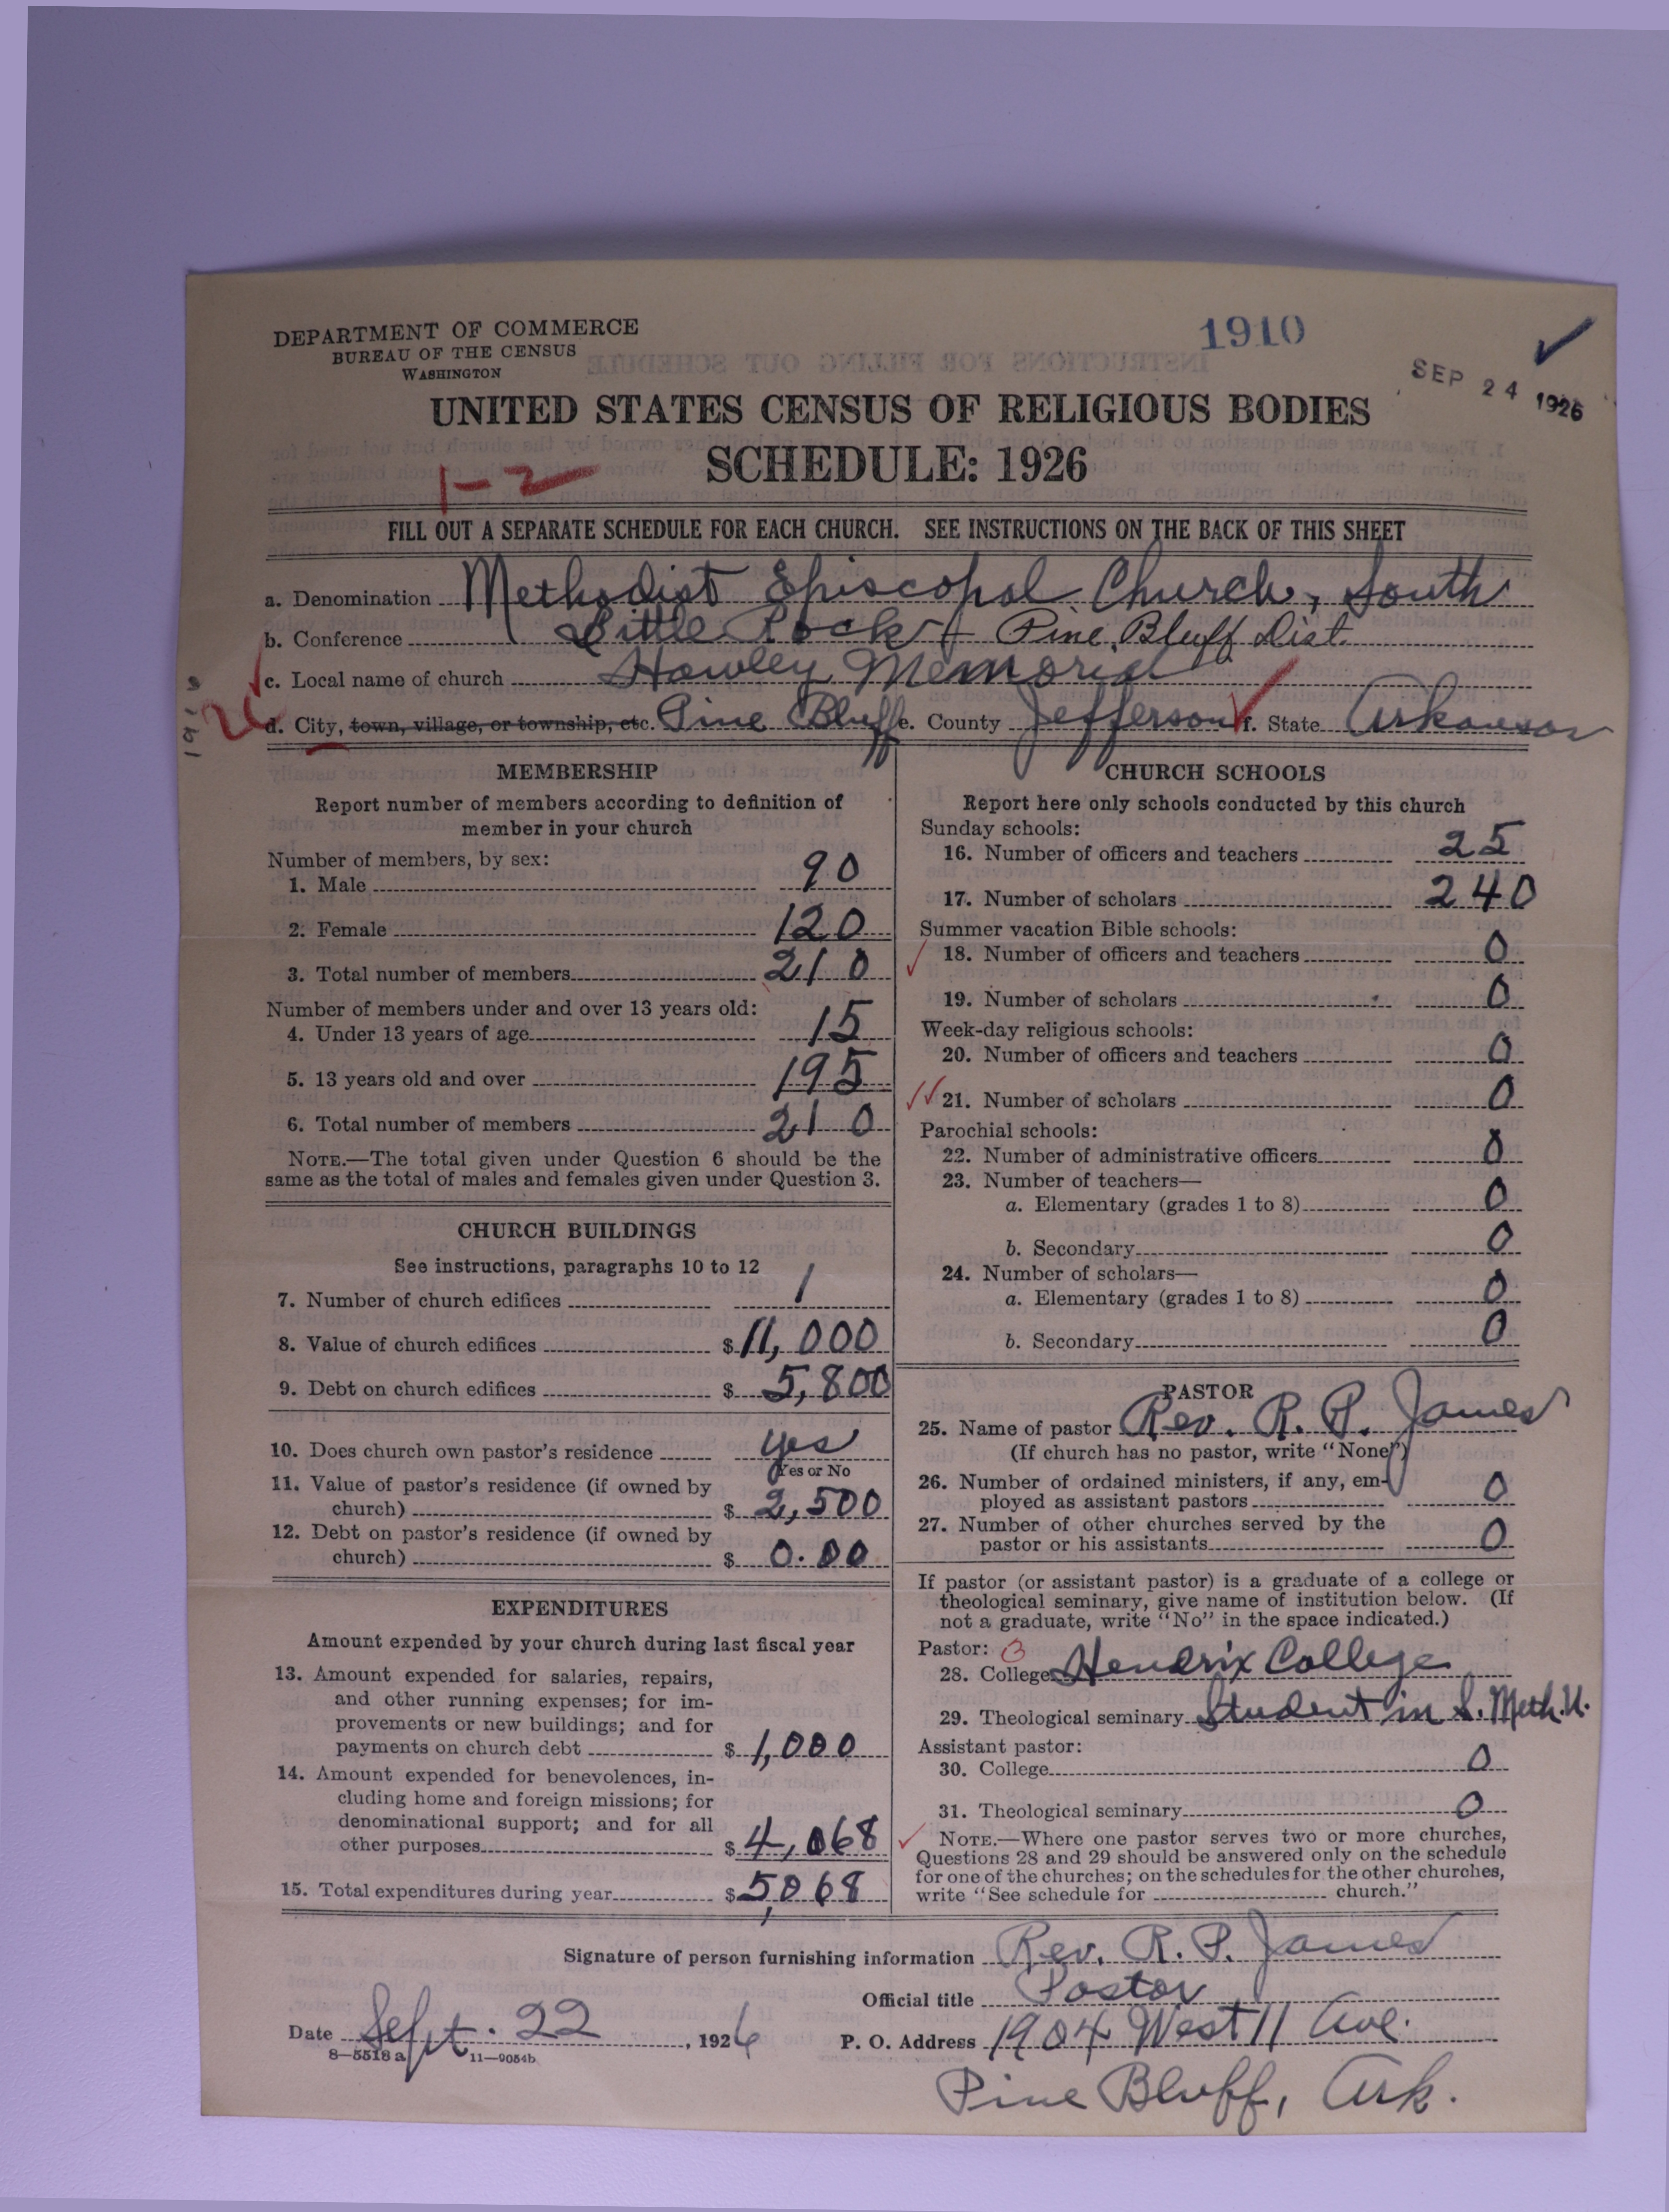 DEPARTMENT OF COMMERCE
BUREAU OF THE CENSUS
WASHINGTON
1910
SEP 24 1926
UNITED STATES CENSUS OF RELIGIOUS BODIES
SCHEDULE: 1926
1-2
FILL OUT A SEPARATE SCHEDULE FOR EACH CHURCH. SEE INSTRUCTIONS ON THE BACK OF THIS SHEET
a. Denomination Methodist Episcopal Church, South
b. Conference Little Rock + Pine Bluff Dist.
c. Local name of church Hawley Memorial
d. City, town, village, or township, etc. Pine Bluff e. County Jefferson f. State Arkansas
MEMBERSHIP
Report number of members according to definition of
member in your church
Number of members, by sex:
1. Male 90
2. Female 120
3. Total number of members 210
Number of members under and over 13 years old:
4. Under 13 years of age 15
5. 13 years old and over 195
6. Total number of members 210
NOTE.—The total given under Question 6 should be the
same as the total of males and females given under Question 3.
CHURCH BUILDINGS
See instructions, paragraphs 10 to 12
7. Number of church edifices 1
8. Value of church edifices $11,000
9. Debt on church edifices $5,800
10. Does church own pastor's residence yes
Yes or No
11. Value of pastor's residence (if owned by
church) $2,500
12. Debt on pastor's residence (if owned by
church) $0.00
EXPENDITURES
Amount expended by your church during last fiscal year
13. Amount expended for salaries, repairs,
and other running expenses; for im-
provements or new buildings; and for
payments on church debt $1,000
14. Amount expended for benevolences, in-
cluding home and foreign missions; for
denominational support; and for all
other purposes $4,068
15. Total expenditures during year $5,068
CHURCH SCHOOLS
Report here only schools conducted by this church
Sunday schools:
16. Number of officers and teachers 25
17. Number of scholars 240
Summer vacation Bible schools:
18. Number of officers and teachers 0
19. Number of scholars 0
Week-day religious schools:
20. Number of officers and teachers 0
21. Number of scholars 0
Parochial schools:
22. Number of administrative officers 0
23. Number of teachers—
a. Elementary (grades 1 to 8) 0
b. Secondary 0
24. Number of scholars—
a. Elementary (grades 1 to 8) 0
b. Secondary 0
PASTOR
25. Name of pastor Rev. R. P. James
(If church has no pastor, write "None")
26. Number of ordained ministers, if any, em-
ployed as assistant pastors 0
27. Number of other churches served by the
pastor or his assistants 0
If pastor (or assistant pastor) is a graduate of a college or
theological seminary, give name of institution below. (If
not a graduate, write "No" in the space indicated.)
Pastor:
28. College Hendrix College
29. Theological seminary Student in S. Meth. U.
Assistant pastor:
30. College 0
31. Theological seminary 0
NOTE.—Where one pastor serves two or more churches,
Questions 28 and 29 should be answered only on the schedule
for one of the churches; on the schedules for the other churches,
write "See schedule for church."
Signature of person furnishing information Rev. R. P. James
Official title Pastor
Date Sept. 22, 1926 P. O. Address 1904 West 11 Ave.
8—5518 a 11—9054b
Pine Bluff, Ark.